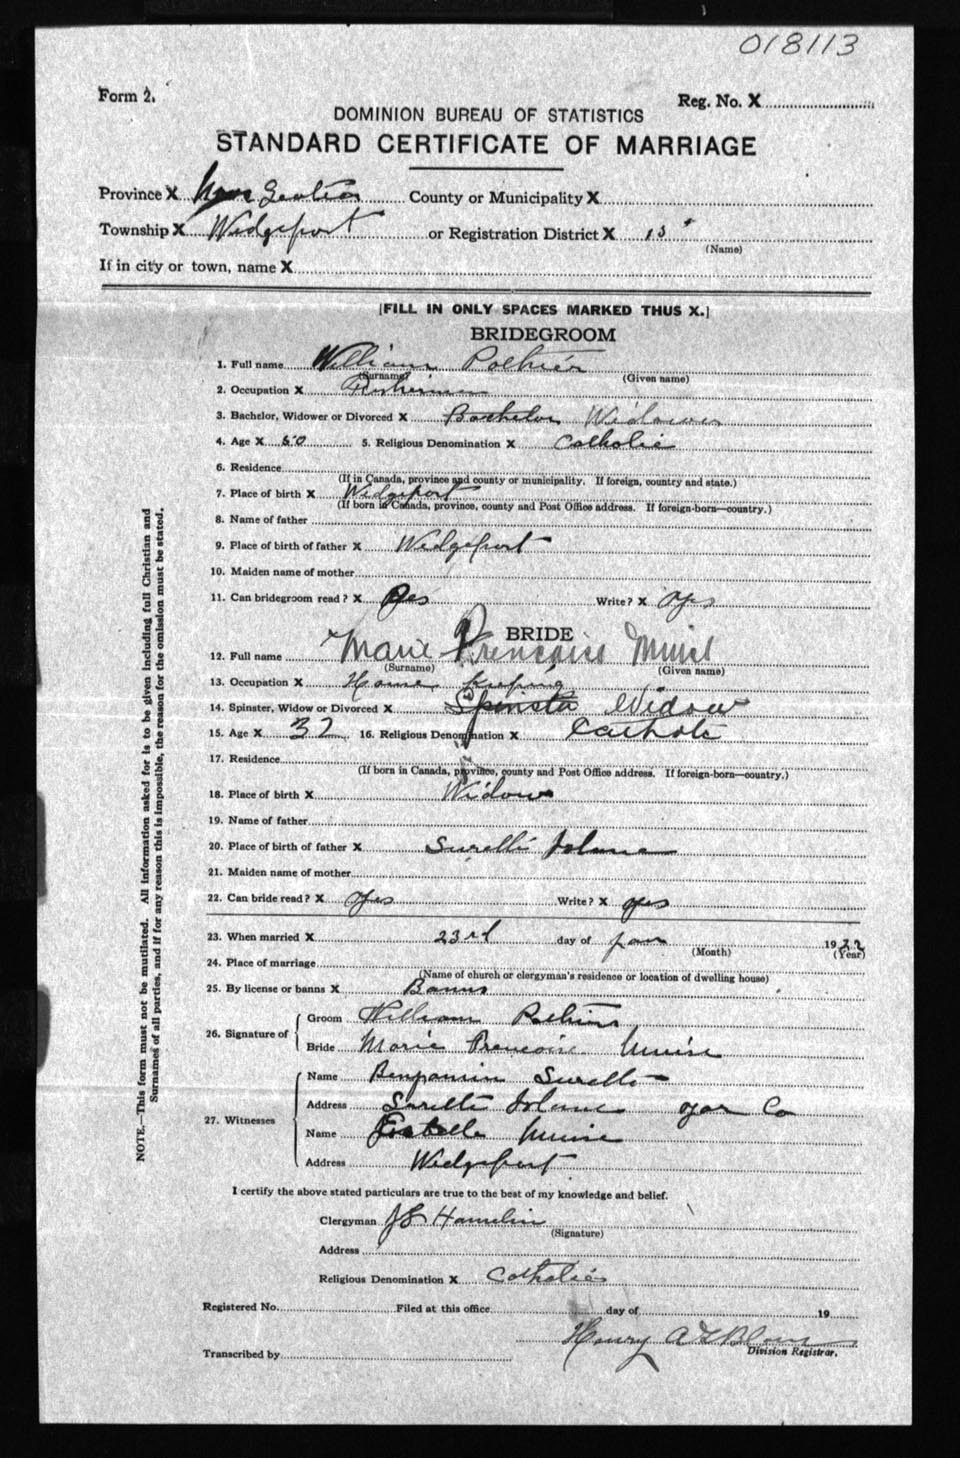 018113
Form 2.
Reg. No. X
DOMINION BUREAU OF STATISTICS
STANDARD CERTIFICATE OF MARRIAGE
Province X Nova Scotia County or Municipality X
Township X Wedgeport or Registration District X 13
(Name)
If in city or town, name X
[FILL IN ONLY SPACES MARKED THUS X.]
BRIDEGROOM
1. Full name William Pothier
(Surname) (Given name)
2. Occupation X Fisherman
3. Bachelor, Widower or Divorced X Bachelor Widower
4. Age X 50 5. Religious Denomination X Catholic
6. Residence
(If in Canada, province and county or municipality. If foreign, country and state.)
7. Place of birth X Wedgeport
(If born in Canada, province, county and Post Office address. If foreign-born—country.)
8. Name of father
9. Place of birth of father X Wedgeport
10. Maiden name of mother
11. Can bridegroom read? X Yes Write? X Yes
BRIDE
12. Full name Marie Francoise
(Surname) (Given name)
13. Occupation X House keeping
14. Spinster, Widow or Divorced X Spinster Widow
15. Age X 37 16. Religious Denomination X Catholic
17. Residence
(If born in Canada, province, county and Post Office address. If foreign-born—country.)
18. Place of birth X Widow
19. Name of father
20. Place of birth of father X Surette Island
21. Maiden name of mother
22. Can bride read? X Yes Write? X yes
23. When married X 23rd day of Jan 1922
(Month) (Year)
24. Place of marriage
(Name of church or clergyman's residence or location of dwelling house)
25. By license or banns X Banns
26. Signature of Groom William Pothier
Bride Marie Francoise Muise
27. Witnesses Name Benjamin Surette
Address Surette Island Yar Co
Name Estelle Muise
Address Wedgeport
I certify the above stated particulars are true to the best of my knowledge and belief.
Clergyman Hamelin
(Signature)
Address
Religious Denomination X Catholic
Registered No. Filed at this office day of 19
Henry
Transcribed by Division Registrar.
NOTE.—This form must not be mutilated. All information asked for is to be given including full Christian and
Surnames of all parties, and if for any reason this is impossible, the reason for the omission must be stated.